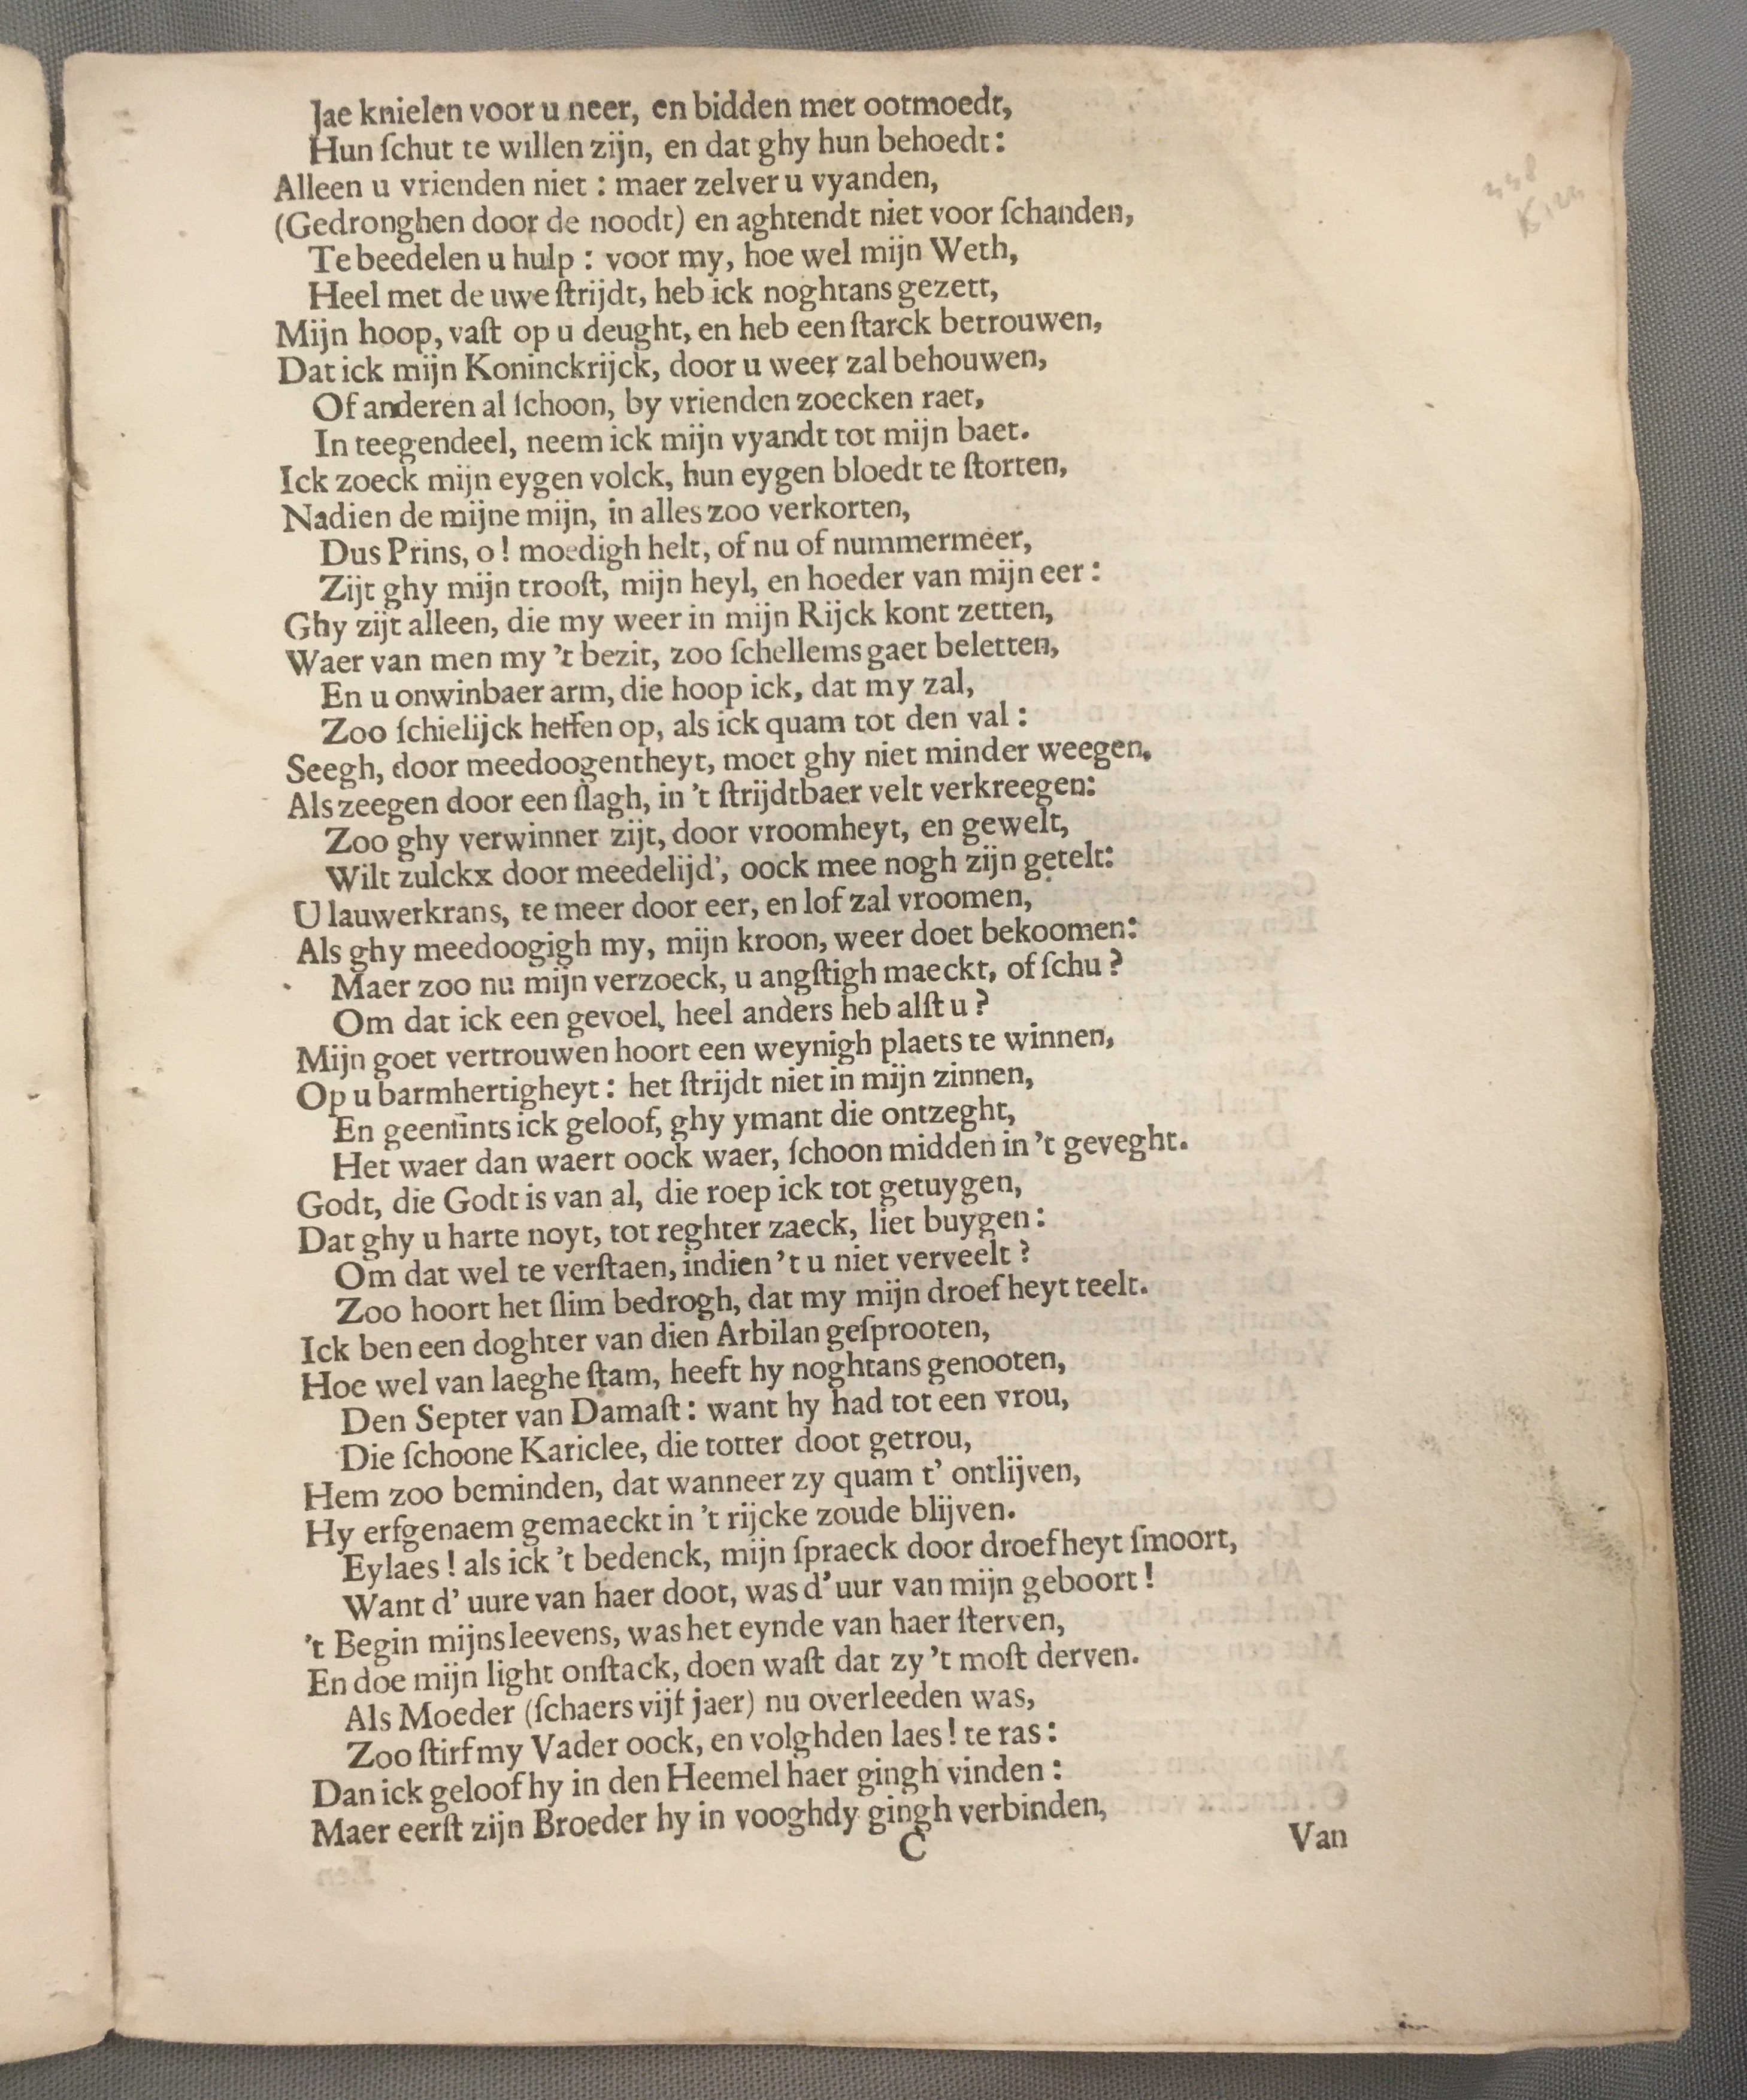 Jae knielen voor u neer, en bidden met ootmoedt,
Hun ſchut te willen zijn, en dat ghy hun behoedt:
Alleen u vrienden niet : maer zelver u vyanden,
(Gedronghen door de noodt) en aghtendt niet voor ſchanden,
Te beedelen u hulp : voor my, hoe wel mijn Weth,
Heel met de uwe ſtrijdt, heb ick noghtans gezett,
Mijn hoop, vaſt op u deught, en heb een ſtarck betrouwen,
Dat ick mijn Koninckrijck, door u weer zal behouwen,
Of anderen al ſchoon, by vrienden zoecken raet,
In teegendeel, neem ick mijn vyandt tot mijn baet.
Ick zoeck mijn eygen volck, hun eygen bloedt te ſtorten,
Nadien de mijne mijn, in alles zoo verkorten,
Dus Prins, o! moedigh helt, of nu of nummermeer,
Zijt ghy mijn trooſt, mijn heyl, en hoeder van mijn eer :
Ghy zijt alleen, die my weer in mijn Rijck kont zetten,
Waer van men my 't bezit, zoo ſchellems gaet beletten,
En u onwinbaer arm, die hoop ick, dat my zal,
Zoo ſchielijck heffen op, als ick quam tot den val :
Seegh, door meedoogentheyt, moet ghy niet minder weegen,
Als zeegen door een ſlagh, in 't ſtrijdtbaer velt verkreegen:
Zoo ghy verwinner zijt, door vroomheyt, en gewelt,
Wilt zulckx door meedelijd', oock mee nogh zijn getelt:
U lauwerkrans, te meer door eer, en lof zal vroomen,
Als ghy meedoogigh my, mijn kroon, weer doet bekoomen:
Maer zoo nu mijn verzoeck, u angſtigh maeckt, of ſchu ?
Om dat ick een gevoel, heel anders heb alſt u ?
Mijn goet vertrouwen hoort een weynigh plaets te winnen,
Op u barmhertigheyt : het ſtrijdt niet in mijn zinnen,
En geenſints ick geloof, ghy ymant die ontzeght,
Het waer dan waert oock waer, ſchoon midden in 't geveght.
Godt, die Godt is van al, die roep ick tot getuygen,
Dat ghy u harte noyt, tot reghter zaeck, liet buygen :
Om dat wel te verſtaen, indien 't u niet verveelt ?
Zoo hoort het ſlim bedrogh, dat my mijn droefheyt teelt.
Ick ben een doghter van dien Arbilan geſprooten,
Hoe wel van laeghe ſtam, heeft hy noghtans genooten,
Den Septer van Damaſt : want hy had tot een vrou,
Die ſchoone Kariclee, die totter doot getrou,
Hem zoo beminden, dat wanneer zy quam t' ontlijven,
Hy erfgenaem gemaeckt in 't rijcke zoude blijven.
Eylaes ! als ick 't bedenck, mijn ſpraeck door droefheyt ſmoort,
Want d' uure van haer doot, was d' uur van mijn geboort !
't Begin mijns leevens, was het eynde van haer ſterven,
En doe mijn light onſtack, doen waſt dat zy 't moſt derven.
Als Moeder (ſchaers vijf jaer) nu overleeden was,
Zoo ſtirf my Vader oock, en volghden laes ! te ras :
Dan ick geloof hy in den Heemel haer gingh vinden :
Maer eerſt zijn Broeder hy in vooghdy gingh verbinden,
C Van